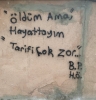 "Öldüm Ama
Hayattayım
Tarifi Çok zor..."
B.P
H.S.